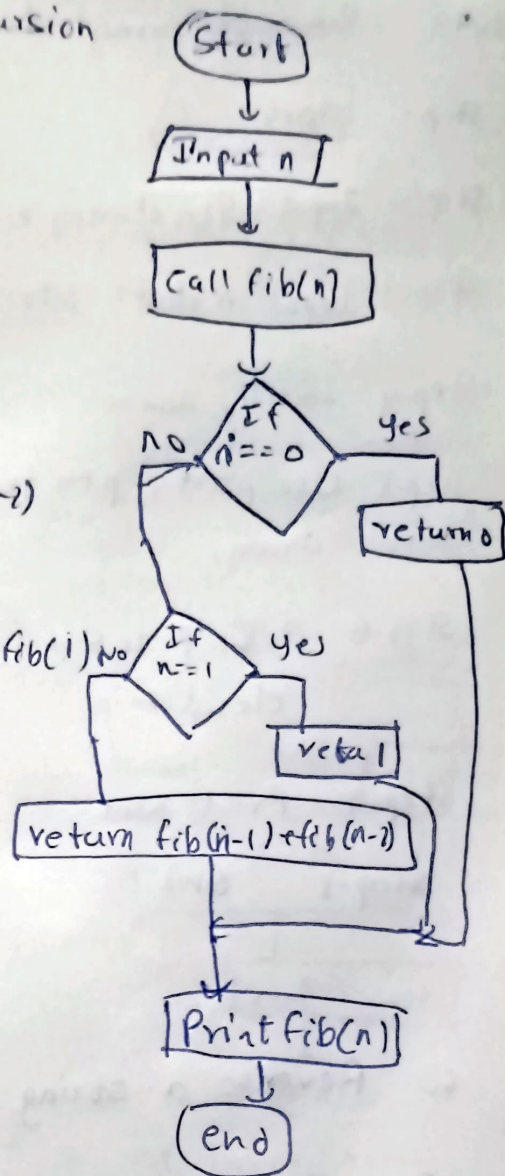 ursion
Start
Input n
Call fib(n)
If
n == 0
no
yes
-2)
return 0
fib(i)
No
If
n == 1
yes
retu 1
return fib(n-1) + fib(n-2)
Print fib(n)
end